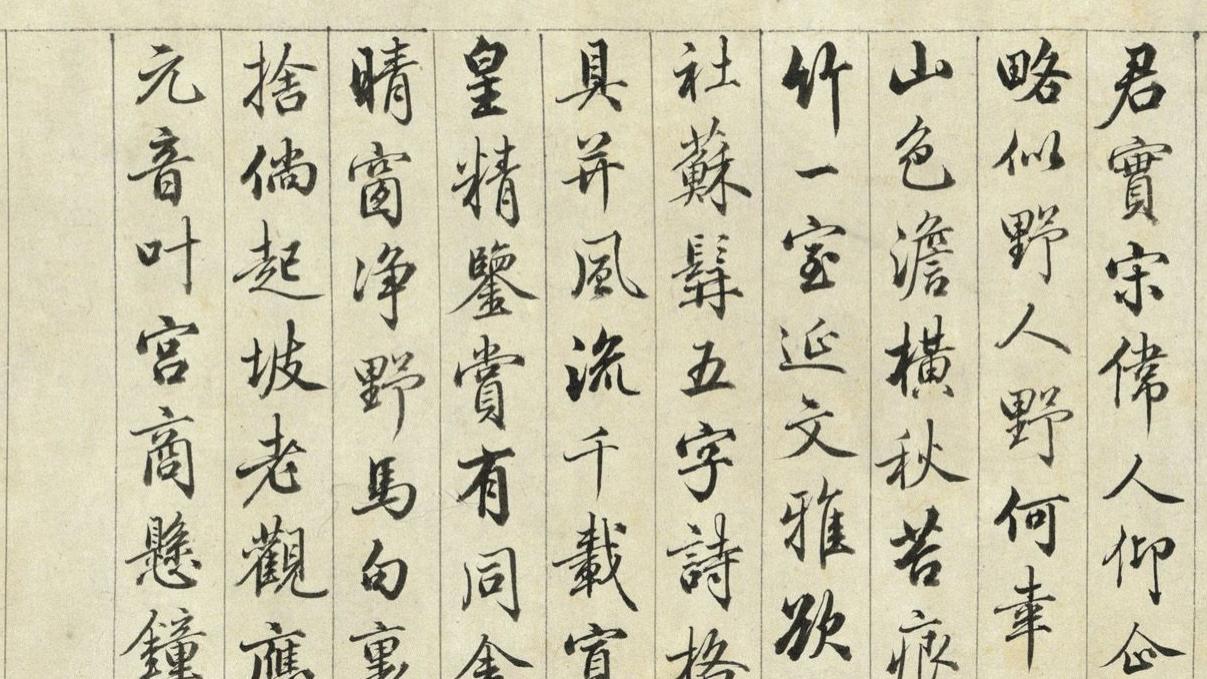 君實宋偉人仰企
略似野人野何幸
山色澹橫秋苔痕
竹一室延文雅欲
社蘇髯五字詩格
具并風流千載宜
皇精鑒賞有同舍
晴窗净野馬白裏
捨倘起坡老觀應
元音叶宮商懸鐘